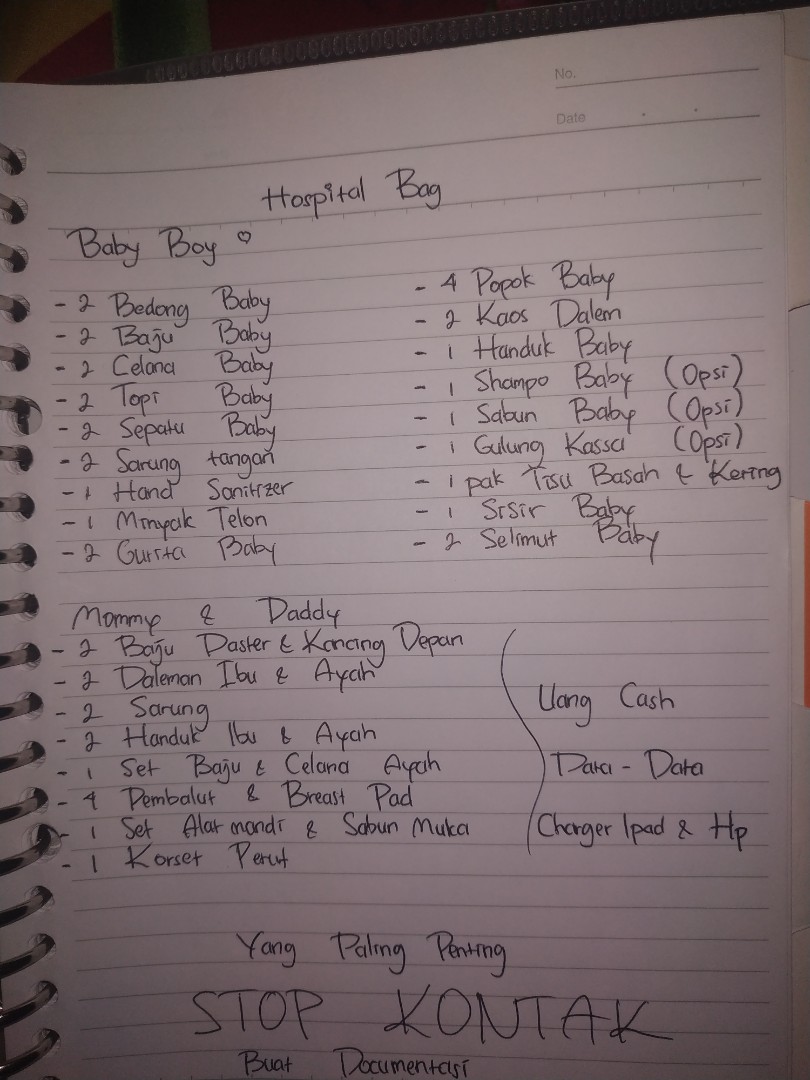 No.
Date
Hospital Bag
Baby Boy ♡
- 2 Bedong Baby
- 2 Baju Baby
- 2 Celana Baby
- 2 Topi Baby
- 2 Sepatu Baby
- 2 Sarung tangan
- 1 Hand Sanitizer
- 1 Minyak Telon
- 2 Gurita Baby
- 4 Popok Baby
- 2 Kaos Dalem
- 1 Handuk Baby
- 1 Shampo Baby (Opsi)
- 1 Sabun Baby (Opsi)
- 1 Gulung Kassa (Opsi)
- 1 pak Tisu Basah & Kering
- 1 Sisir Baby
- 2 Selimut Baby
Mommy & Daddy
- 2 Baju Daster & Kancing Depan
- 2 Daleman Ibu & Ayah
- 2 Sarung
- 2 Handuk Ibu & Ayah
- 1 Set Baju & Celana Ayah
- 4 Pembalut & Breast Pad
- 1 Set Alat mandi & Sabun Muka
- 1 Korset Perut
Uang Cash
Data - Data
Charger Ipad & Hp
Yang Paling Penting
STOP KONTAK
Buat Documentasi